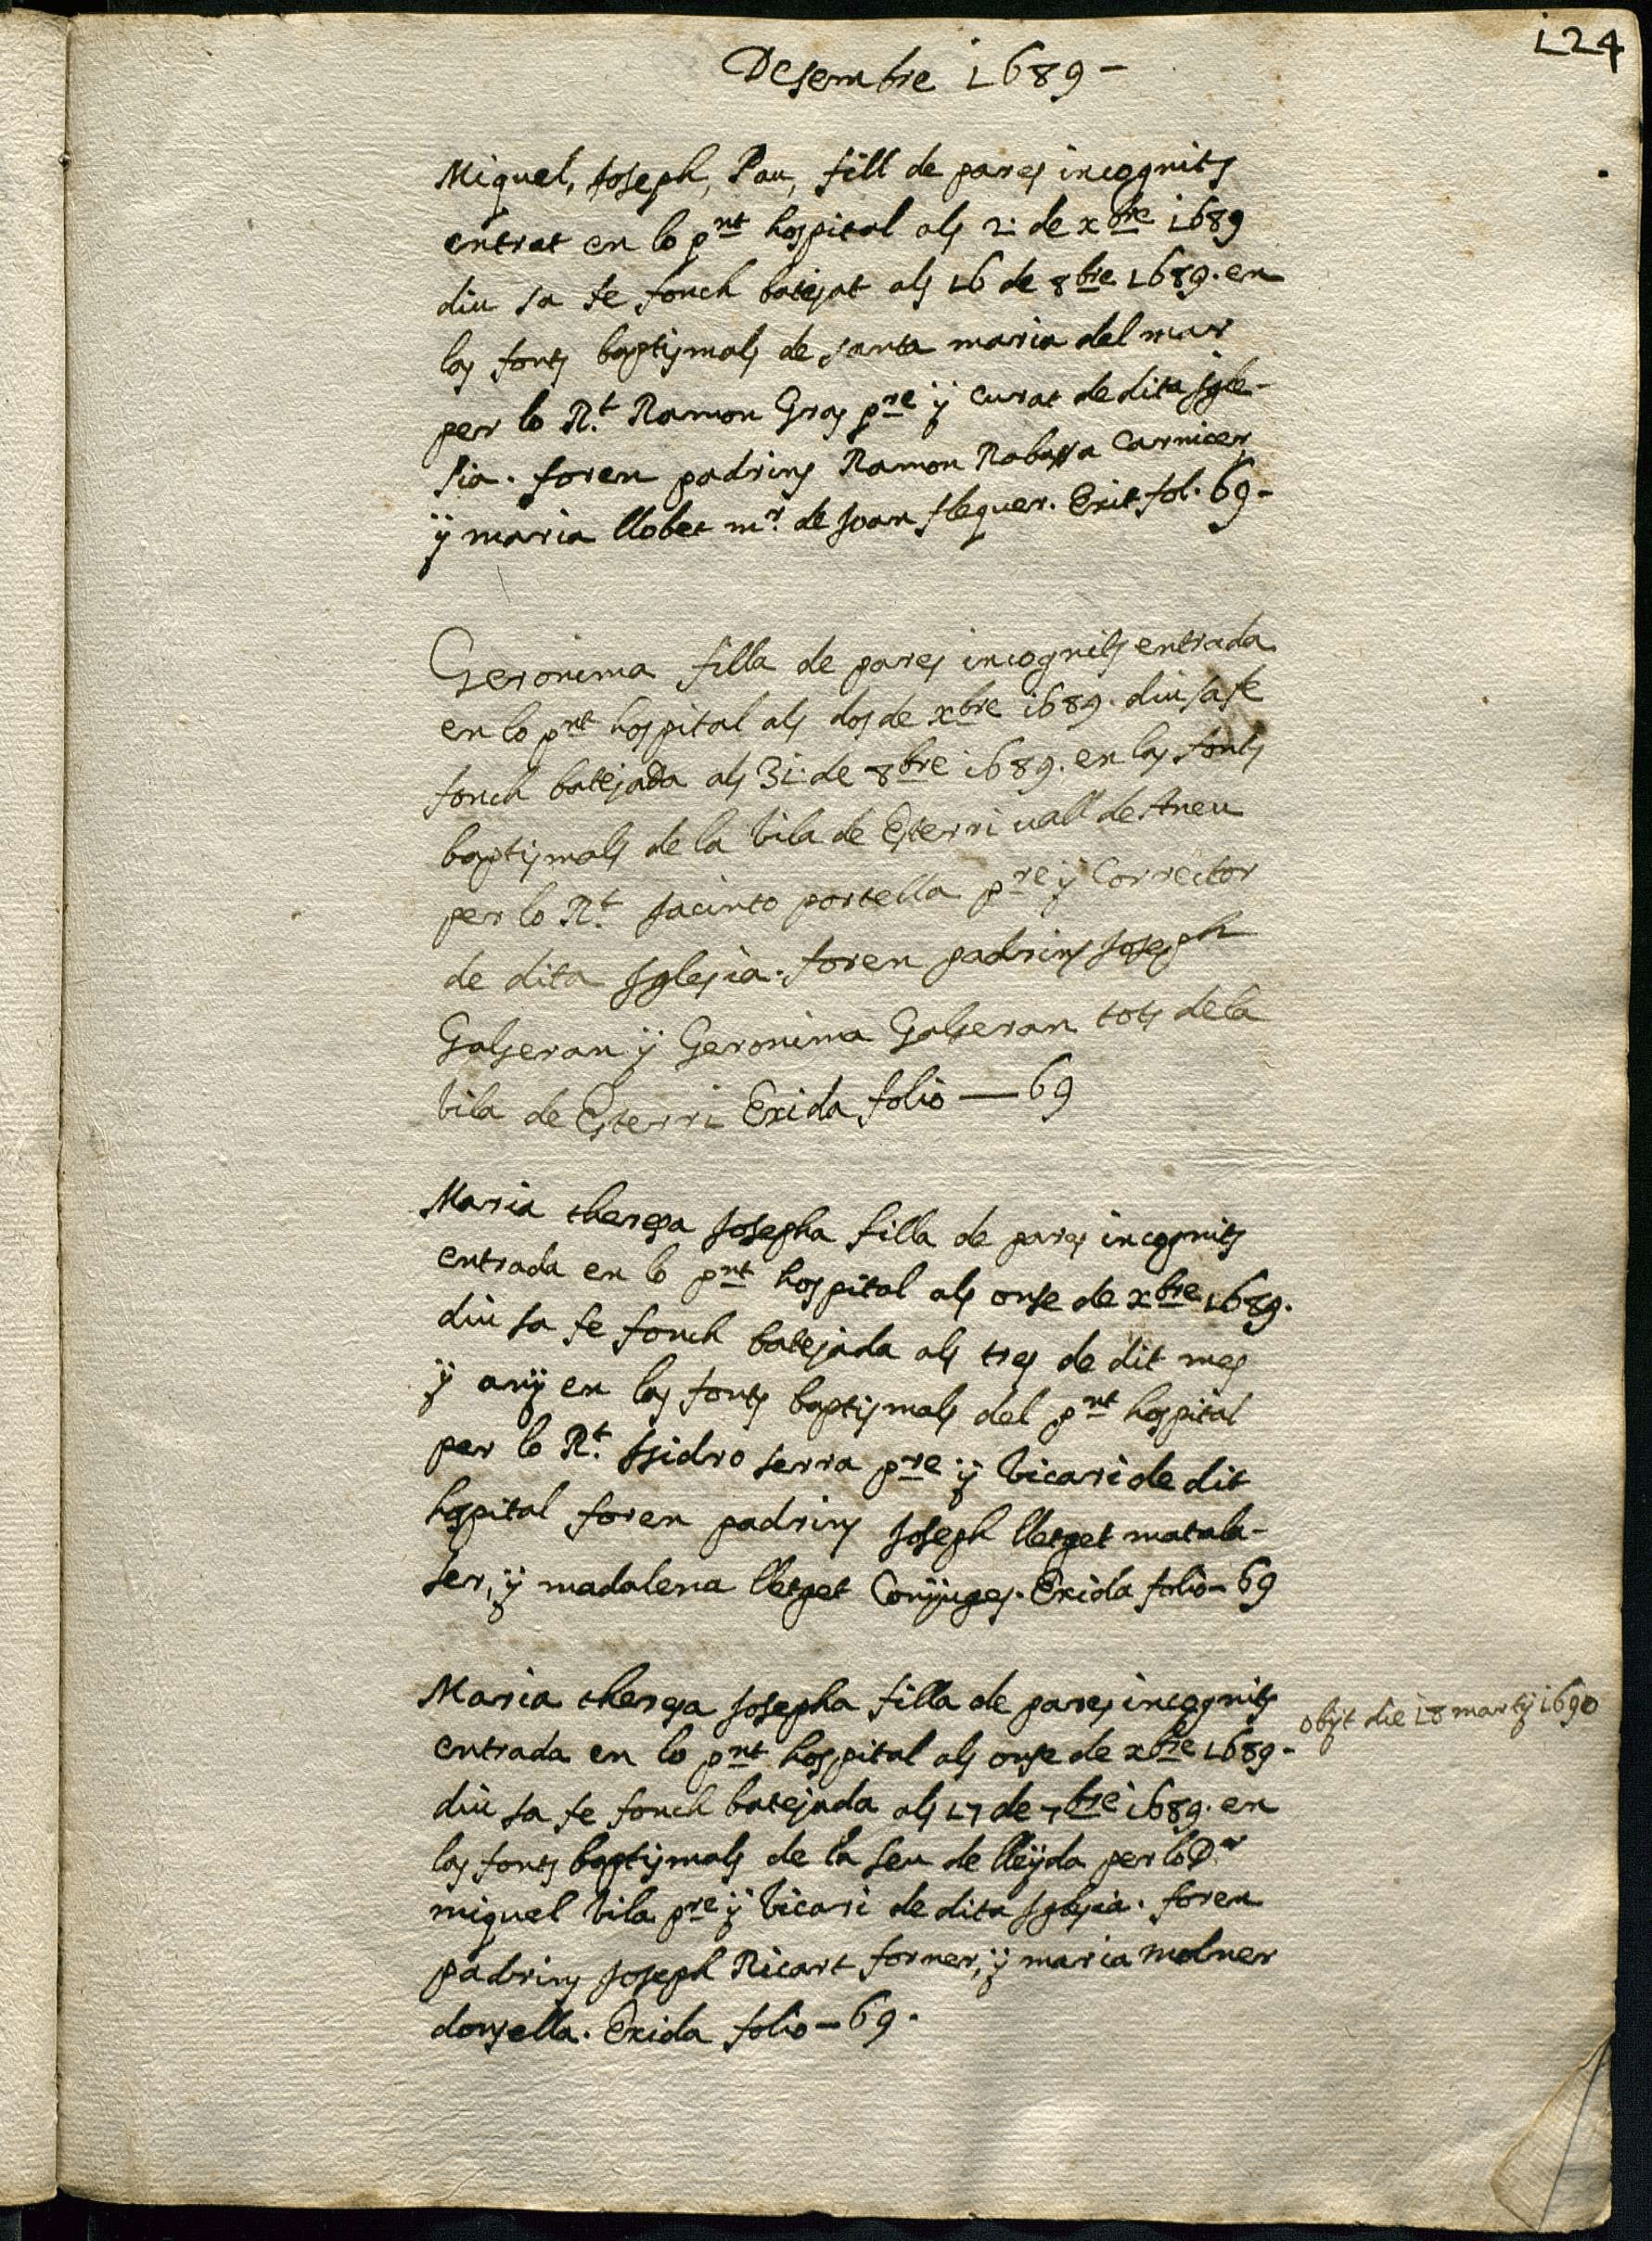 124
Desembre 1689 -
Miquel, Joseph, Pau, fill de pares incognits
entrat en lo pnt hospital als 2: de xbre 1689
diu sa fe fonch batejat als 16 de 8bre 1689. en
las fonts baptismals de santa maria del mar
per lo Rt. Ramon Gras pre ÿ curat de dita Igle-
sia. foren padrins Ramon Rabassa Carnicer,
ÿ maria llobet mr. de Joan flequer. Exit fol. 69 -
Geronima filla de pares incognits entrada
en lo pnt hospital als dos de xbre 1689. diu sa fe
fonch batejada als 31: de 8bre 1689. en las fonts
baptismals de la vila de Esterri vall de Aneu
per lo Rt. Jacinto portella pre ÿ Corrector
de dita Iglesia. foren padrins Joseph
Galseran ÿ Geronima Galseran tots de la
vila de Esterri Exida folio — 69
Maria theresa Josepha filla de pares incognits
entrada en lo pnt hospital als onse de xbre 1689.
diu sa fe fonch batejada als tres de dit mes
ÿ anÿ en las fonts baptismals del pnt hospital
per lo Rt. Isidro serra pre ÿ vicari de dit
hospital foren padrins Joseph lletget matala-
ser, ÿ madalena lletget Conÿuges. Exida folio - 69
Maria theresa Josepha filla de pares incognits
entrada en lo pnt hospital als onse de xbre 1689 -
obÿt die 18 martÿ 1690
diu sa fe fonch batejada als 17 de 7bre 1689. en
las fonts baptismals de la seu de lleÿda per lo Dr
miquel vila pre ÿ vicari de dita Iglesia. foren
padrins Joseph Ricart forner, ÿ maria molner
donsella. Exida folio - 69.